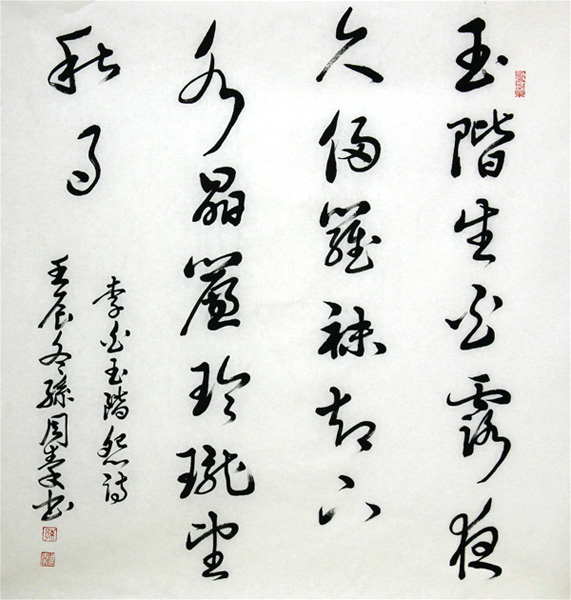 玉階生白露夜
久侵羅袜却下
水晶簾玲瓏望
秋月
李白玉階怨詩
壬辰冬孫周书